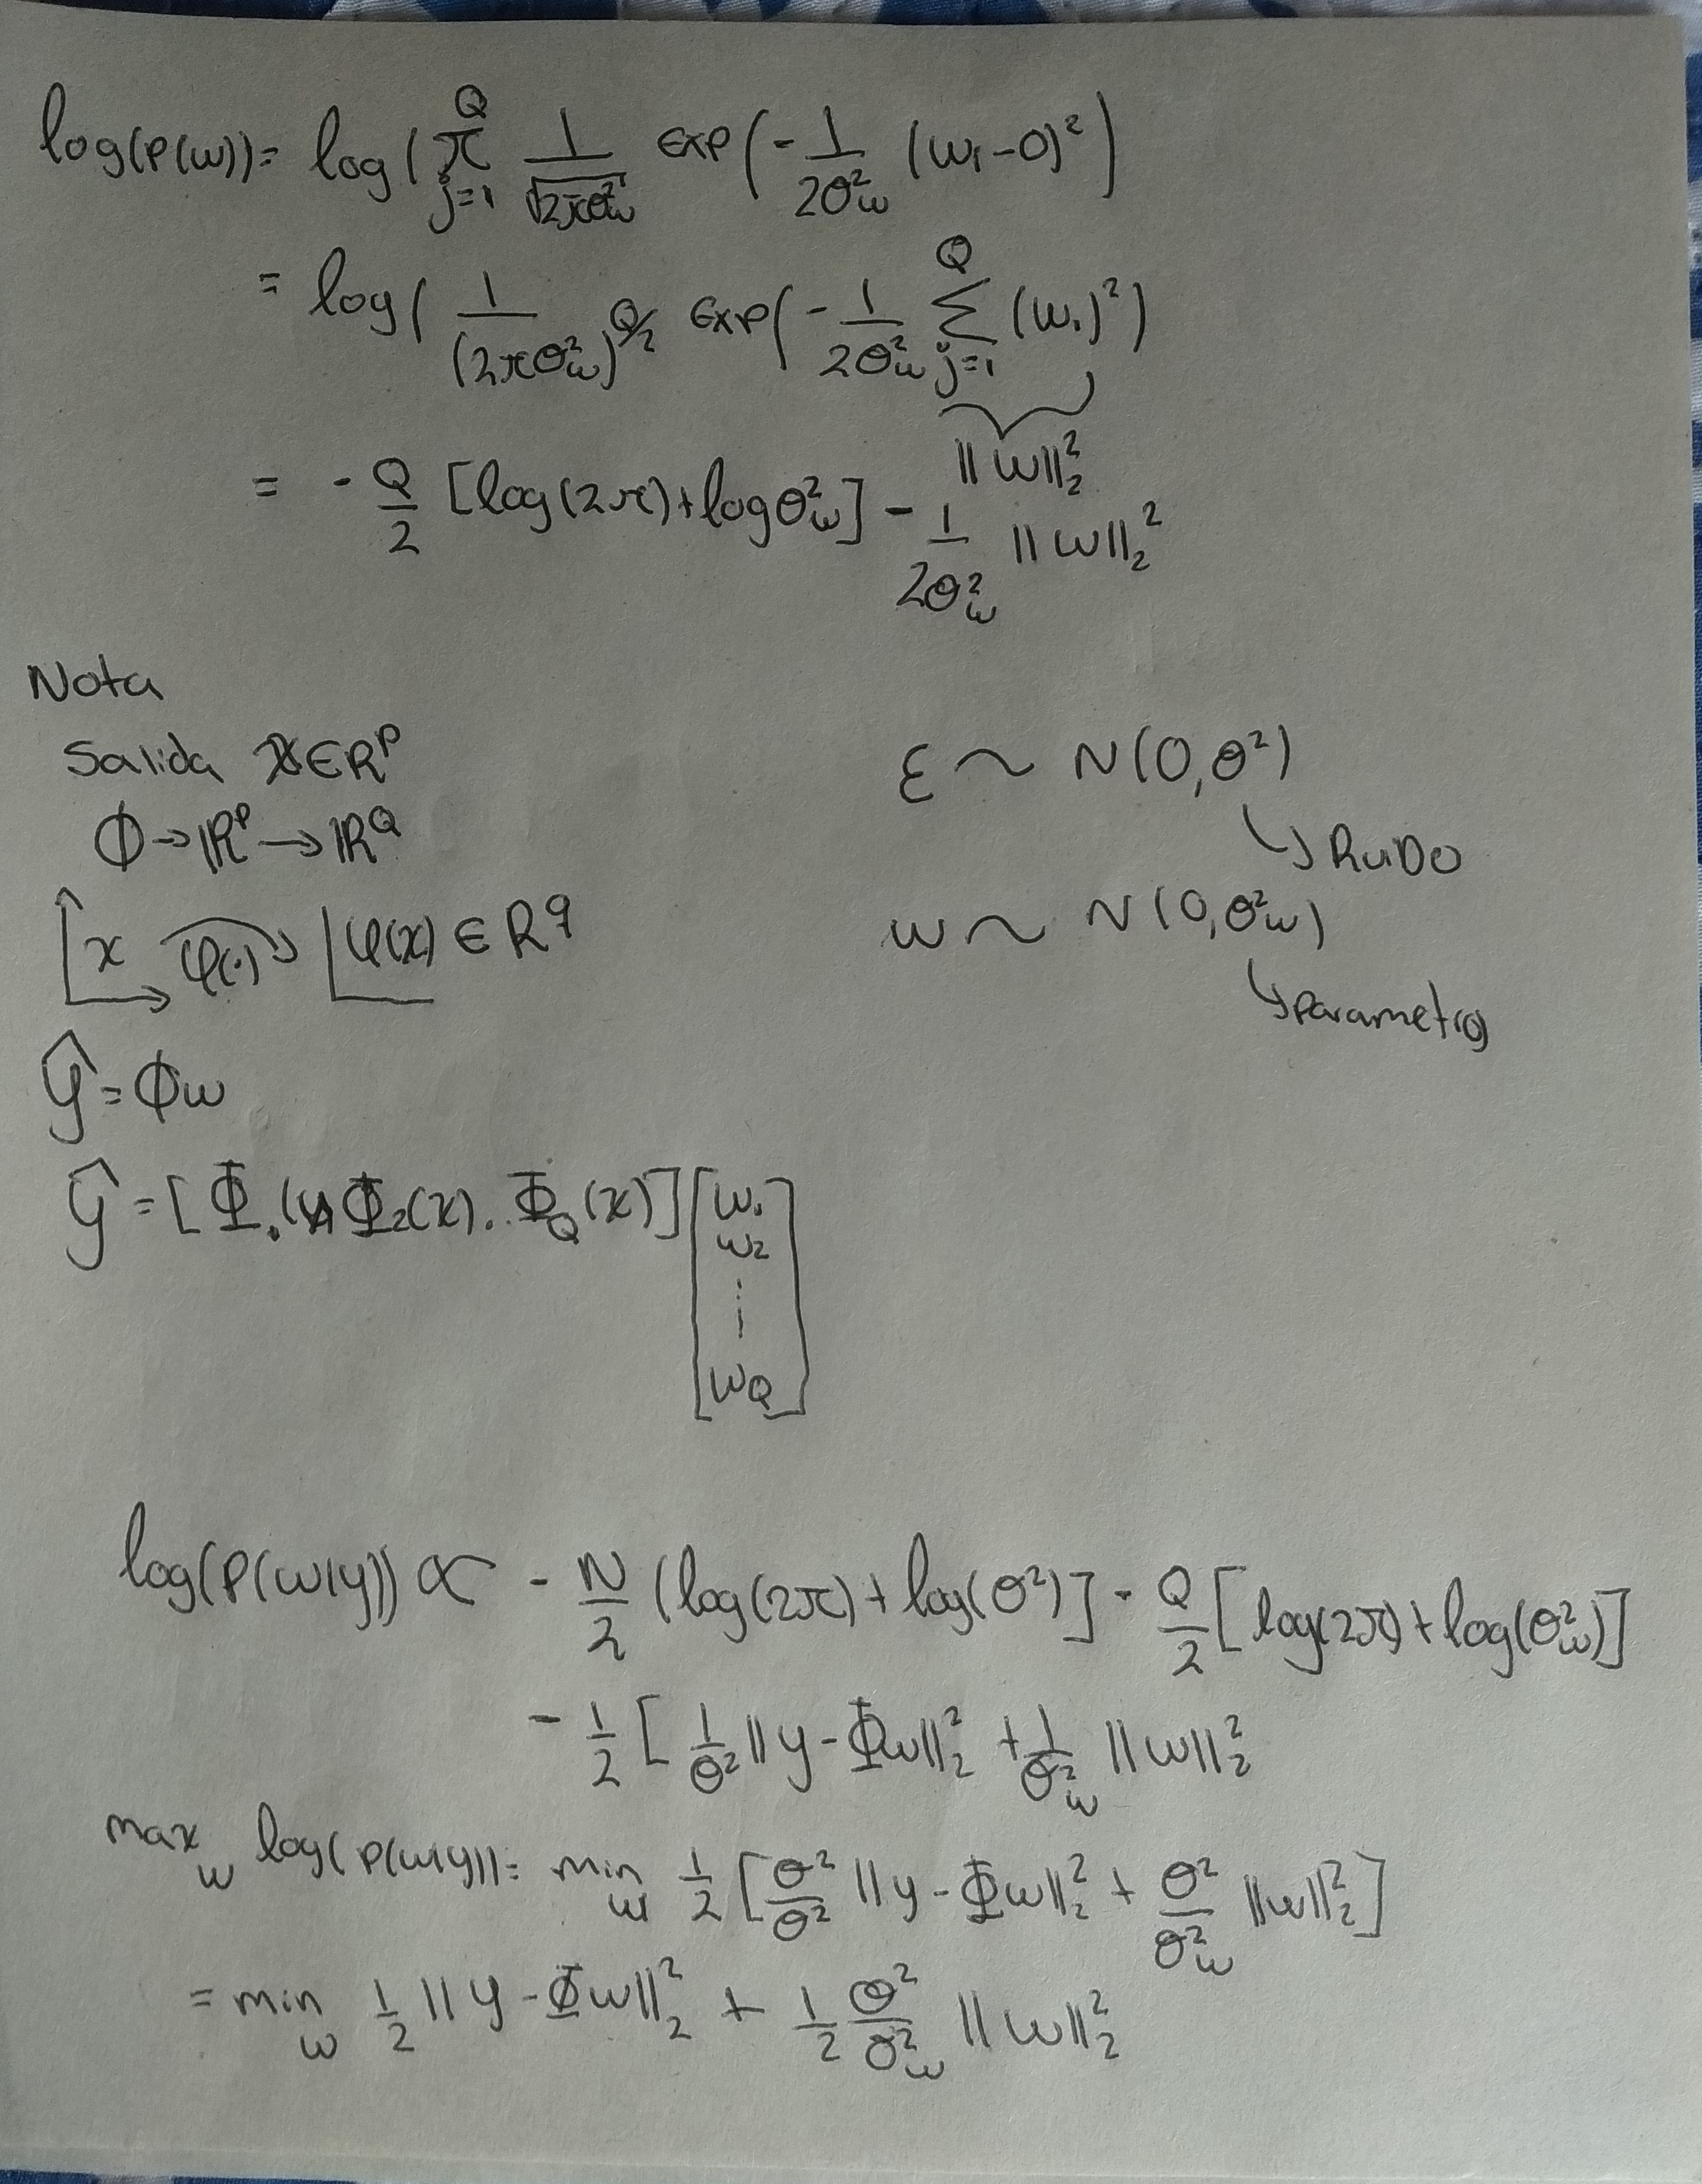 log(P(w)) = log( π_{j=1}^{Q} 1/√(2πθ²_w) Exp(-1/(2θ²_w) (w₁-0)²)
= log( 1/(2πθ²_w)^{Q/2} Exp(-1/(2θ²_w) Σ_{j=1}^{Q} (w₁)²)
||w||₂²
= -Q/2 [log(2π)+logθ²_w] - 1/(2θ²_w) ||w||₂²
Nota
Salida X∈R^P
ε ~ N(0,θ²)
ϕ→ℝ^P→ℝ^Q
↳ RuiDo
x φ(·) φ(x) ∈ R^q
w ~ N(0,θ²w)
↳ parametros
ŷ = ϕw
ŷ = [Φ₁(x) Φ₂(x). . Φ_Q(x)] [w₁ w₂ ⋮ w_Q]
log(P(w|y)) ∝ - N/2 (log(2π)+log(θ²)] - Q/2 [log(2π)+log(θ²_w)]
- 1/2 [ 1/θ² ||y-Φw||₂² + 1/θ²_w ||w||₂²
max_w log(P(w|y)) = min_w 1/2 [θ²/θ² ||y-Φw||₂² + θ²/θ²_w ||w||₂²]
= min_w 1/2 ||y-Φw||₂² + 1/2 θ²/θ²_w ||w||₂²